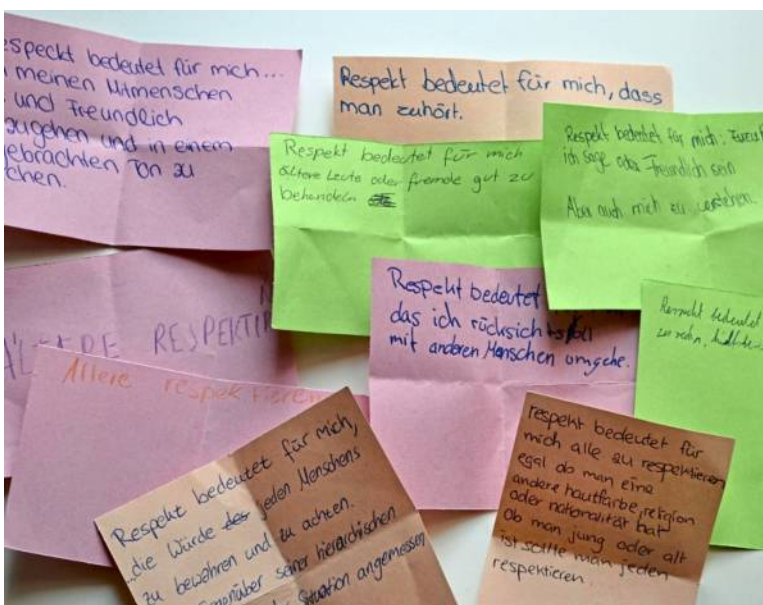 speckt bedeutet für mich...
meinen Mitmenschen
und Freundlich
zugehen und in einem
gebrachten Ton zu
chen.
Respekt bedeutet für mich, dass
man zuhört.
Respekt bedeutet für mich
ältere Leute oder fremde gut zu
behandeln
Respekt bedeutet für mich:
ich sage oder Freundlich sein
Aber auch mich zu verstehen.
RESPEKTI
Ältere respektieren
Respekt bedeutet
das ich rücksichtsvoll
mit anderen Menschen umgehe.
bedeutet
zu
Respekt bedeutet für mich,
...die Würde jeden Menschens
zu bewahren und zu achten.
seiner hierarchischen
Situation angemessen
respekt bedeutet für
mich alle zu respektieren
egal ob man eine
andere hautfarbe, religion
oder nationalität hat
ob man jung oder alt
ist sollte man jeden
respektieren.